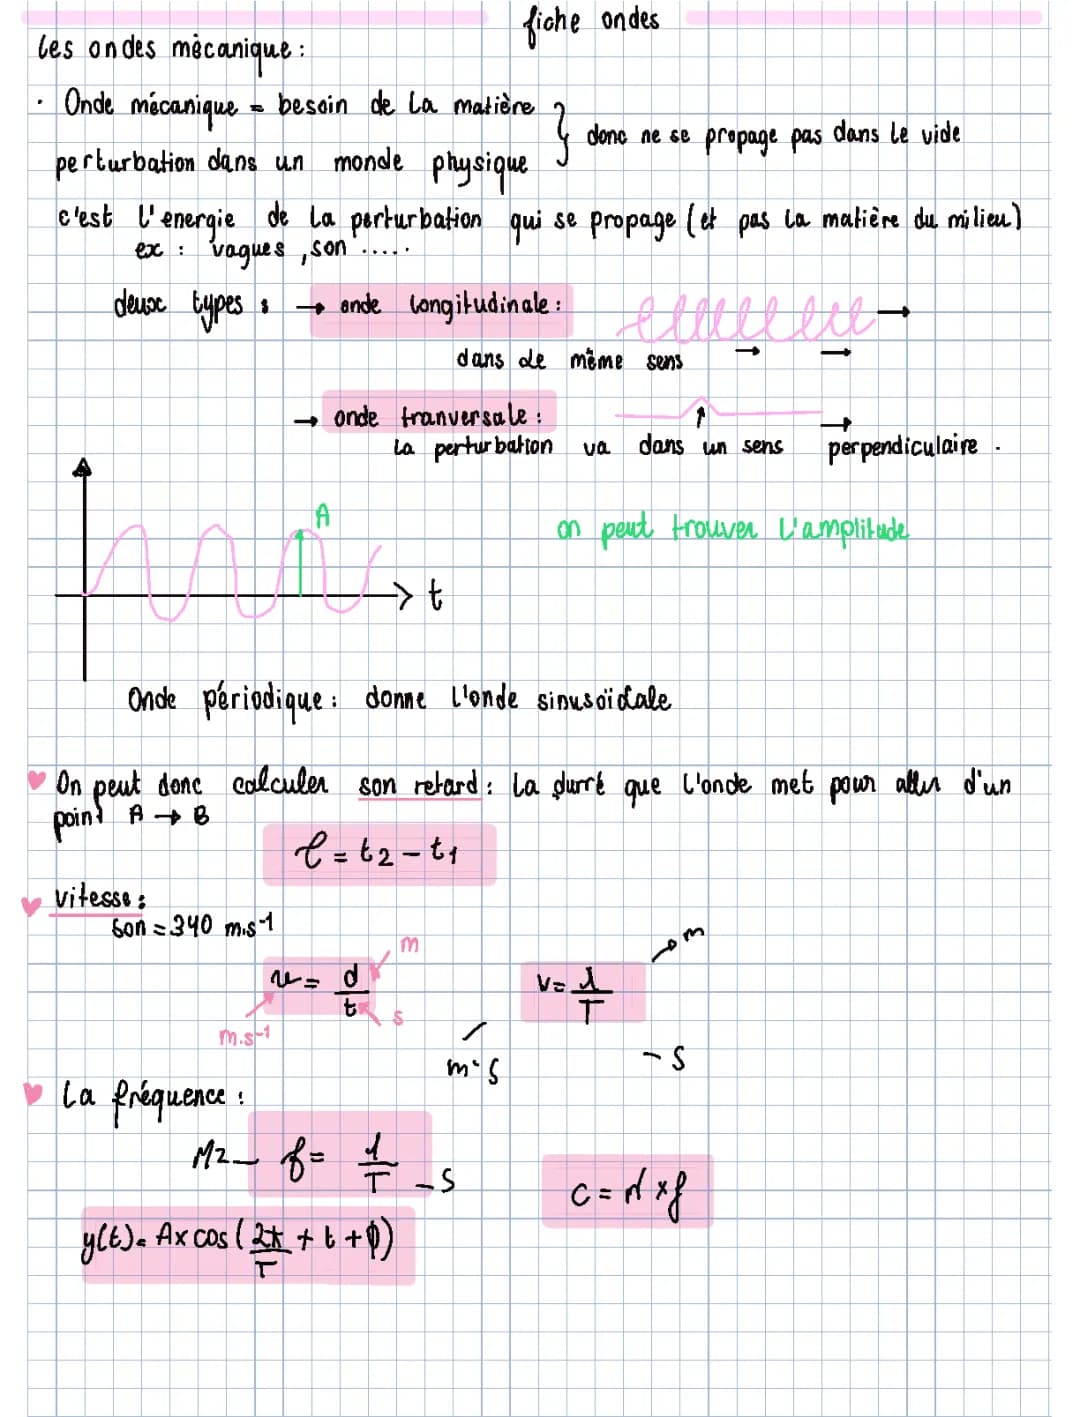 fiche ondes
les ondes mècanique :
· Onde mécanique = besoin de la matière
perturbation dans un monde physique } donc ne se propage pas dans le vide
c'est l'energie de la perturbation qui se propage (et pas la matière du milieu)
ex : vagues , son .....
deux types : → onde longitudinale :
dans le même sens
→ onde tranversale :
la perturbation va dans un sens perpendiculaire .
A
on peut trouver l'amplitude
t
Onde périodique : donne l'onde sinusoïdale
On peut donc calculer son retard : la durré que l'onde met pour aller d'un
point A → B
τ = t2 - t1
vitesse :
son = 340 m.s-1
m
m
v = d/t
v = λ/T
s
m.s-1
m·s
- s
la fréquence :
Hz — f = 1/T - s
c = λ × f
y(t) = A x cos ( 2π/T + t + ϕ)